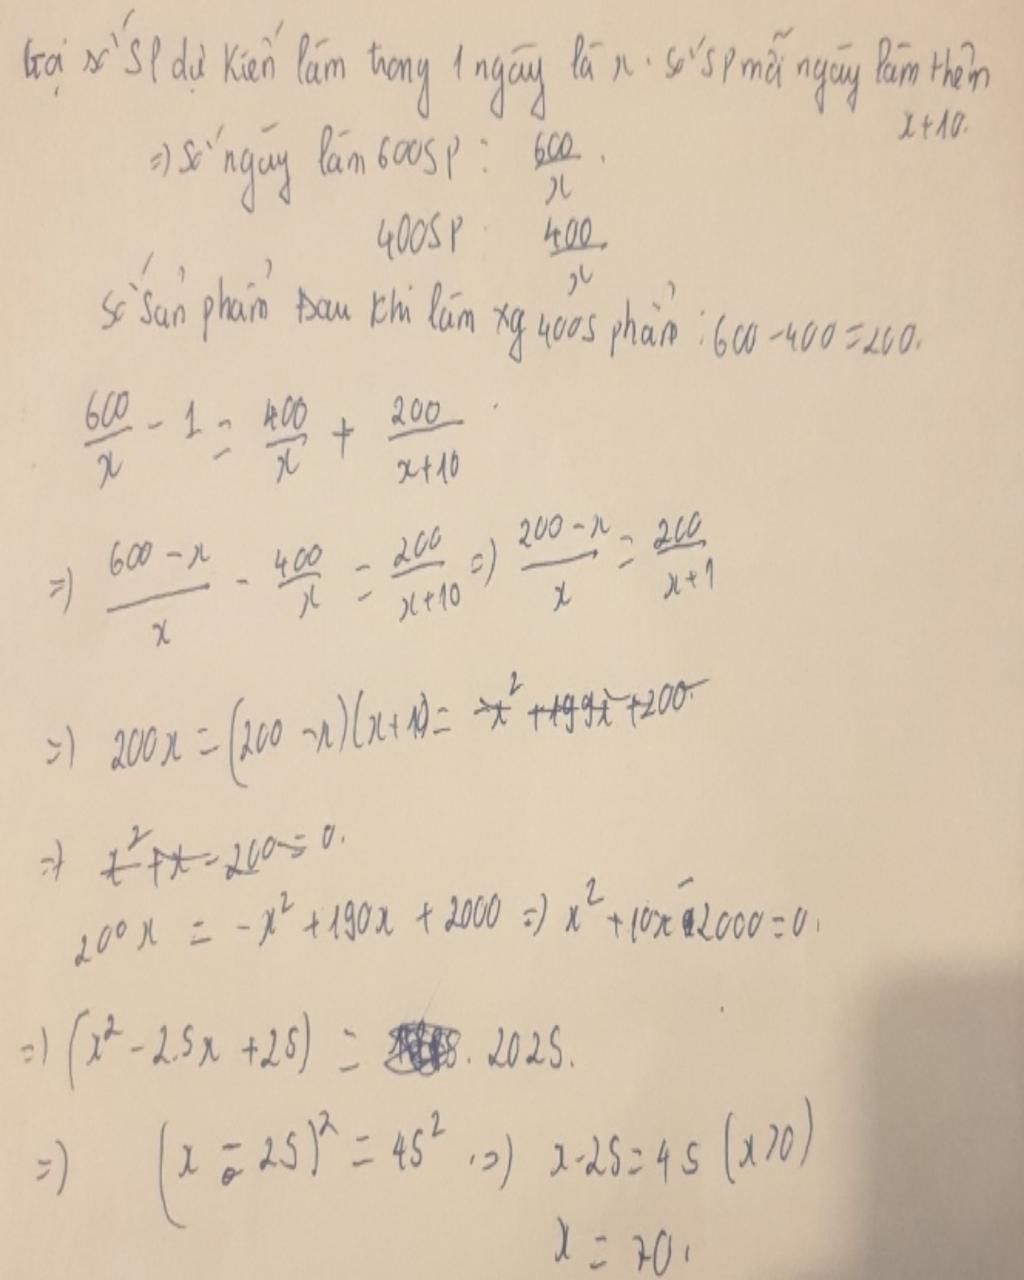 Gọi số SP dự kiến làm trong 1 ngày là x. số SP mỗi ngày làm thêm
x+10.
=) Số ngày làm 600SP : 600/x .
400SP : 400/x
Số sản phẩm sau khi làm xg 400 S phẩm : 600 - 400 = 200.
600/x - 1 = 400/x + 200/(x+10)
=) (600 - x)/x - 400/x = 200/(x+10) =) (200 - x)/x = 200/(x+1
=) 200x = (200 - x)(x+10) = -x² + 199x + 200
=) x² + x - 200 = 0.
200x = -x² + 190x + 2000 =) x² + 10x - 2000 = 0.
=) (x² - 2.5x + 25) = . 2025.
=) (x - 25)² = 45² =) x - 25 = 45 (x>0)
x = 70.